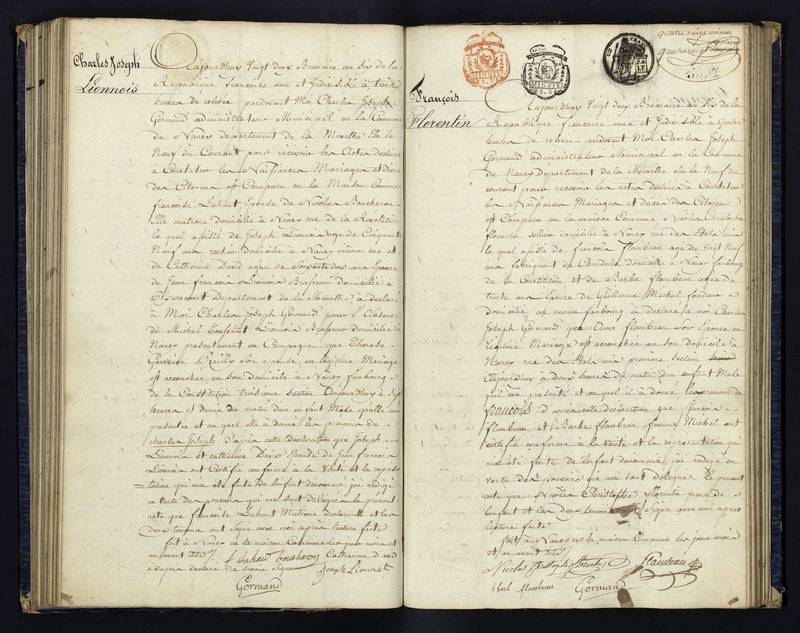 Charles Joseph
Lionnois
Aujourdhuy Vingt deux Brumaire an Six de la
Republique francaise une et Indivisible à trois
heures de relevée pardevant Moi Charles Joseph
Gormand administrateur Municipal en la Commune
de Nancy departement de la Meurthe Elu le
Neuf du Courant pour recevoir les Actes destinés
à Constater les Naissances Mariages et Décès
des Citoyens est Comparu en la Maison Commune
francoise Lahaut Epouse de Nicolas Boucheron
domicilié à Nancy rue de la Révolution
le quel assisté de Joseph Lionnois agé de Cinquante
Neuf ans domicilié à Nancy même rue et
de Catherine David agée de Soixante deux ans Epouse
de Jean francois Lionnois Brasseur domiciliée à
departement de la Meurthe à déclaré
à Moi Charles Joseph Gormand pour l'absence
de Michel Lionnois Brasseur domicilié à
Nancy presentement en Campagne que Therese
Genevieve Son epouse en légitime Mariage
est accouchée en son domicile à Nancy faubourg
de la Constitution troisieme Section Aujourdhuy à Sept
heures et demie du matin d'un enfant Male quelle ma
presenté et au quel elle a donné les prenoms de
charles Joseph d'après cette déclaration que Joseph
Lionnois et catherine David Epouse de Jean francois
Lionnois ont Certifié conforme à la Vérité et la représen
tation qui m'a été faite de l'enfant dénommé j'ai redigé
en vertu des pouvoirs qui me sont délégués le présent
acte que francoise Lahaut Matrone declarante et les
deux temoins ont signé avec moi après lecture faite
fait à Nancy en la maison Commune les jour mois et
an avant dits
f Lahaut boucheron Catherine david
a depuis declaré ne savoir Signer
Joseph Lionnois
Gormand
François
Florentin
MINUTE
MINUTE
quatre vingt
Aujourdhuy Vingt deux Brumaire an Six de la
Republique francaise une et Indivisible à quatre
heures de relevée pardevant Moi Charles Joseph
Gormand administrateur Municipal en la Commune
de Nancy Departement de la Meurthe élu le Neuf du
courant pour recevoir les actes destinés à Constater
les Naissances Mariages et décès des Citoyens
est Comparu en la maison Commune Nicolas Christophe
florentin Sellier domicilié à Nancy rue des
le quel assisté de francois flambeau agé de Vingt Neuf
ans fabriquant de Chandelle domicilié à Nancy faubourg
de la Constitution et de Barbe flambeau agée de
trente ans Epouse de Guillaume Michel
domiciliée au même faubourg à déclaré à moi Charles
Joseph Gormand que Anne flambeau Son Epouse en
légitime Mariage est accouchée en son domicile à
Nancy rue des première Section
Aujourdhuy à deux heures du matin d'un enfant Male
qu'il ma presenté et au quel il à donné le prenom de
François d'après cette declaration que francois
flambeau et Barbe flambeau femme Michel ont
certifié conforme à la Verité et la representation qui
m'a été faite de l'enfant dénommé j'ai redigé en
vertu des pouvoirs qui me sont délégués le présent
acte que Nicolas Christophe florentin pere de
l'enfant et les deux temoins ont Signé avec moi après
lecture faite
fait à Nancy en la maison Commune les jour mois
et an avant dits
Nicolas Christophe florentin flambeau
Barbe flambeau Gormand